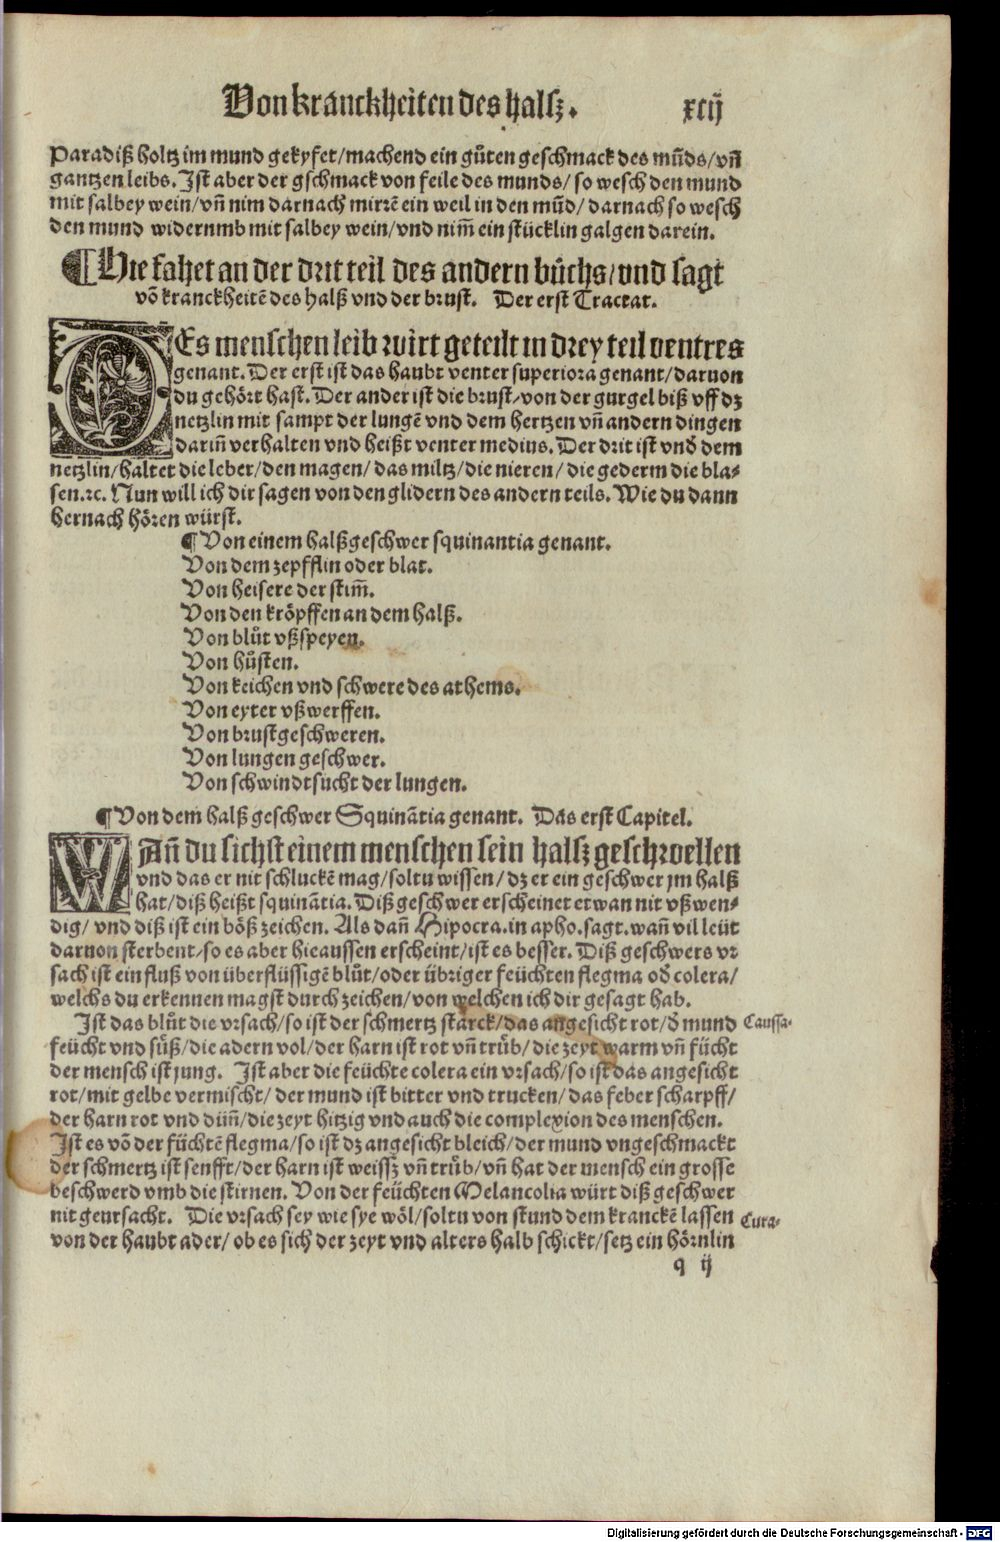 Von kranckheiten des halsz. xcij
Paradiß holtz im mund gekyfet/machend ein gůten geschmack des mūds/vñ
gantzen leibs. Ist aber der gschmack von feile des munds/ so wesch den mund
mit salbey wein/vñ nim darnach mirrē ein weil in den mūd/ darnach so wesch
den mund widerumb mit salbey wein/vnd nim̄ ein stücklin galgen darein.
¶Hie fahet an der drit teil des andern bůchs/vnd sagt
vō kranckheitē des halß vnd der brust. Der erst Tractat.
DEs menschen leib wirt geteilt in drey teil ventres
genant. Der erst ist das haubt venter superiora genant/daruon
du gehört hast. Der ander ist die brust/von der gurgel biß vff dz
netzlin mit sampt der lungē vnd dem hertzen vñ andern dingen
dariñ verhalten vnd heißt venter medius. Der drit ist vnď dem
netzlin/haltet die leber/den magen/das miltz/die nieren/die gederm die bla-
sen.⁊c. Nun will ich dir sagen von den glidern des andern teils. Wie du dann
hernach hören würst.
¶Von einem halßgeschwer squinantia genant.
Von dem zepfflin oder blat.
Von heisere der stim̄.
Von den kröpffen an dem halß.
Von blůt vßspeyen.
Von hůsten.
Von keichen vnd schwere des athems.
Von eyter vßwerffen.
Von brustgeschweren.
Von lungen geschwer.
Von schwindtsucht der lungen.
¶Von dem halß geschwer Squināntia genant. Das erst Capitel.
WAñ du sichst einem menschen sein halsz geschwellen
vnd das er nit schluckē mag/soltu wissen/dz er ein geschwer jm halß
hat/diß heißt squinātia. Diß geschwer erscheinet etwan nit vßwen-
dig/ vnd diß ist ein böß zeichen. Als dañ Hipocra.in apho.sagt.wañ vil leüt
daruon sterbent/so es aber hieaussen erscheint/ist es besser. Diß geschwers vr
sach ist ein fluß von überflüssigē blůt/oder übriger feüchten flegma oď colera/
welchs du erkennen magst durch zeichen/von welchen ich dir gesagt hab.
Ist das blůt die vrsach/so ist der schmertz starck/das angesicht rot/ď mund Caussa.
feücht vnd sůß/die adern vol/der harn ist rot vñ trůb/die zeyt warm vñ fücht
der mensch ist jung. Ist aber die feüchte colera ein vrsach/so ist das angesicht
rot/mit gelbe vermischt/der mund ist bitter vnd trucken/das feber scharpff/
der harn rot vnd düñ/die zeyt hitzig vnd auch die complexion des menschen.
Ist es vō der füchtē flegma/so ist dz angesicht bleich/der mund vngeschmackt
der schmertz ist senfft/der harn ist weissz vñ trůb/vñ hat der mensch ein grosse
beschwerd vmb die stirnen. Von der feüchten Melancolia würt diß geschwer
nit geursacht. Die vrsach sey wie sye wöl/soltu von stund dem kranckē lassen Cura.
von der haubt ader/ ob es sich der zeyt vnd alters halb schickt/setz ein hörnlin
q ij
Digitalisierung gefördert durch die Deutsche Forschungsgemeinschaft - DFG